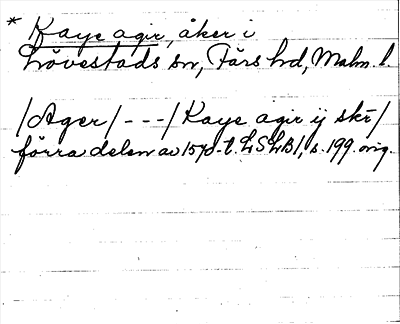 * Kaye agir, åker i
Lövestads sn, Färs hd, Malm. l.
/Ager/ --- / Kaye agir ij skr /
förra delen av 1570-t. LSLB1, s. 199. orig.